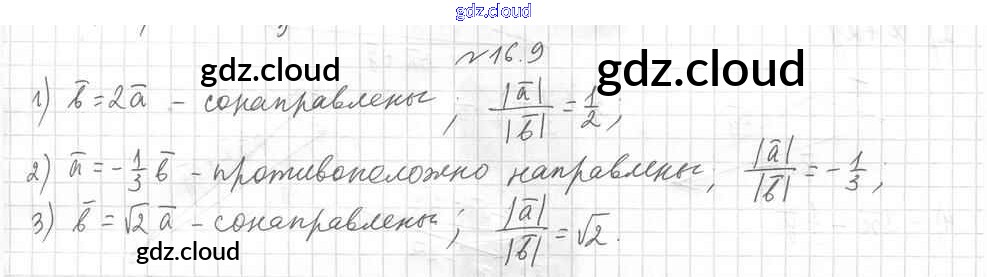 gdz.cloud
№16.9
gdz.cloud gdz.cloud
1) b̅ = 2a̅ – сонаправлены; |a̅|/|b̅| = 1/2;
2) a̅ = -1/3 b̅ – противоположно направлены, |a̅|/|b̅| = -1/3;
3) b̅ = √2 a̅ – сонаправлены; |a̅|/|b̅| = √2.
gdz.cloud gdz.cloud